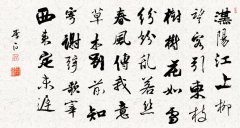 漢陽江上柳
望客引東枝
樹樹花如雪
紛紛亂若絲
春風傳我意
草木別前知
寄謝弦歌宰
西來定未遲